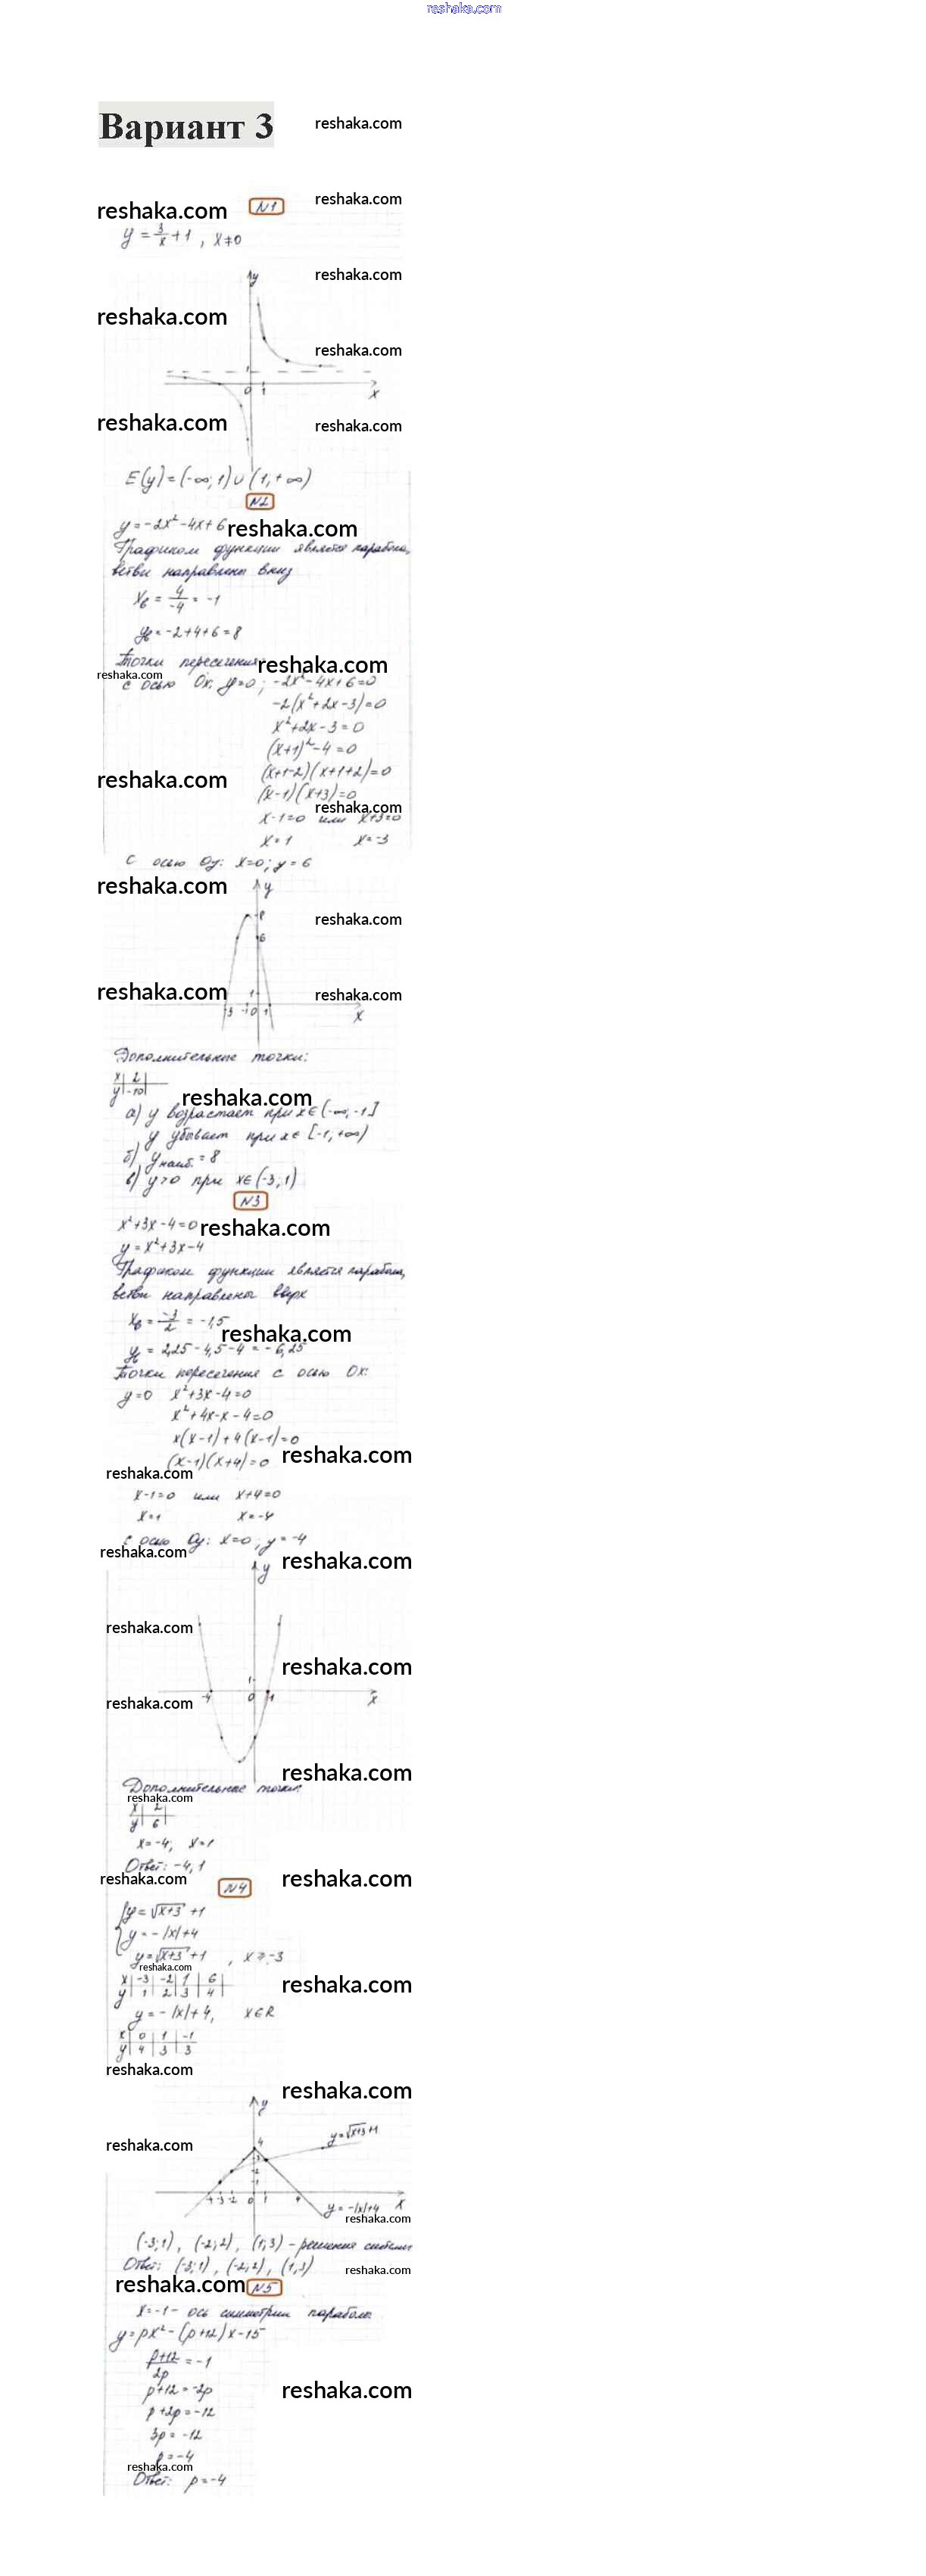 reshaka.com
Вариант 3
reshaka.com
reshaka.com
reshaka.com
N1
y = 3/x + 1 , x≠0
reshaka.com
y
reshaka.com
reshaka.com
1
0 1 x
reshaka.com
reshaka.com
E(y) = (-∞; 1) ∪ (1; +∞)
N2
y = -2x² - 4x + 6
reshaka.com
Графиком функции является парабола,
ветви направлены вниз
xв = 4/-4 = -1
yв = -2+4+6 = 8
Точки пересечения
reshaka.com
reshaka.com
с осью Ox, y=0; -2x² - 4x + 6 = 0
-2(x² + 2x - 3) = 0
x² + 2x - 3 = 0
(x+1)² - 4 = 0
reshaka.com
(x+1-2)(x+1+2) = 0
(x-1)(x+3) = 0
reshaka.com
x-1=0 или x+3=0
x=1 x=-3
С осью Oy: x=0; y=6
reshaka.com
y
8
reshaka.com
6
reshaka.com
1
reshaka.com
-3 -1 0 1 x
Дополнительные точки:
x | 2
y | -10
reshaka.com
а) y возрастает при x∈(-∞; -1]
y убывает при x∈[-1; +∞)
б) yнаиб. = 8
в) y>0 при x∈(-3; 1)
N3
x² + 3x - 4 = 0
reshaka.com
y = x² + 3x - 4
Графиком функции является парабола,
ветви направлены вверх
xв = -3/2 = -1,5
reshaka.com
yв = 2,25 - 4,5 - 4 = -6,25
Точки пересечения с осью Ox:
y=0 x² + 3x - 4 = 0
x² + 4x - x - 4 = 0
x(x-1) + 4(x-1) = 0
reshaka.com
(x-1)(x+4) = 0
reshaka.com
x-1=0 или x+4=0
x=1 x=-4
С осью Oy: x=0; y=-4
reshaka.com
reshaka.com
y
reshaka.com
reshaka.com
1
-4 0 1 x
reshaka.com
reshaka.com
Дополнительные точки:
reshaka.com
x | 2
y | 6
x=-4; x=1
Ответ: -4, 1
reshaka.com
reshaka.com
N4
{ y = √x+3 + 1
y = -|x| + 4
y = √x+3 + 1 , x ≥ -3
reshaka.com
x | -3 | -2 | 1 | 6
y | 1 | 2 | 3 | 4
reshaka.com
y = -|x| + 4, x∈R
x | 0 | 1 | -1
y | 4 | 3 | 3
reshaka.com
reshaka.com
y
y = √x+3 + 1
reshaka.com
4
3
2
1
-4 -3 -2 0 1 4 x
y = -|x|+4
reshaka.com
(-3; 1), (-2; 2), (1; 3) - решение системы
Ответ: (-3; 1), (-2; 2), (1; 3)
reshaka.com
reshaka.com
N5
x = -1 - ось симметрии параболы
y = px² - (p+12)x - 15
p+12/2p = -1
p+12 = -2p
reshaka.com
p+2p = -12
3p = -12
p = -4
reshaka.com
Ответ: p = -4